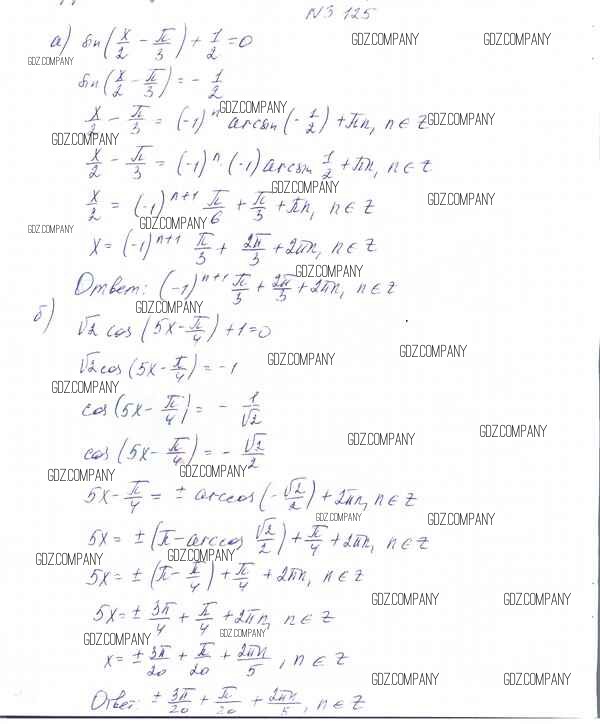 N3 125
а) sin(x/2 − π/3) + 1/2 = 0
GDZ.COMPANY GDZ.COMPANY GDZ.COMPANY
sin(x/2 − π/3) = − 1/2
GDZ.COMPANY
x/2 − π/3 = (−1)^n arcsin(− 1/2) + πn, n ∈ Z
GDZ.COMPANY GDZ.COMPANY
x/2 − π/3 = (−1)^n · (−1) arcsin 1/2 + πn, n ∈ Z
GDZ.COMPANY
x/2 = (−1)^{n+1} π/6 + π/3 + πn, n ∈ Z
GDZ.COMPANY GDZ.COMPANY GDZ.COMPANY
x = (−1)^{n+1} π/3 + 2π/3 + 2πn, n ∈ Z
GDZ.COMPANY
Ответ: (−1)^{n+1} π/3 + 2π/3 + 2πn, n ∈ Z
GDZ.COMPANY
б) √2 cos(5x − π/4) + 1 = 0
GDZ.COMPANY GDZ.COMPANY
√2 cos(5x − π/4) = −1
GDZ.COMPANY
cos(5x − π/4) = − 1/√2
GDZ.COMPANY GDZ.COMPANY
cos(5x − π/4) = − √2/2
GDZ.COMPANY GDZ.COMPANY
5x − π/4 = ± arccos(− √2/2) + 2πn, n ∈ Z
GDZ.COMPANY GDZ.COMPANY
5x = ± (π − arccos √2/2) + π/4 + 2πn, n ∈ Z
GDZ.COMPANY GDZ.COMPANY
5x = ± (π − π/4) + π/4 + 2πn, n ∈ Z
GDZ.COMPANY GDZ.COMPANY
5x = ± 3π/4 + π/4 + 2πn, n ∈ Z
GDZ.COMPANY GDZ.COMPANY
x = ± 3π/20 + π/20 + 2πn/5, n ∈ Z
GDZ.COMPANY GDZ.COMPANY
Ответ: ± 3π/20 + π/20 + 2πn/5, n ∈ Z